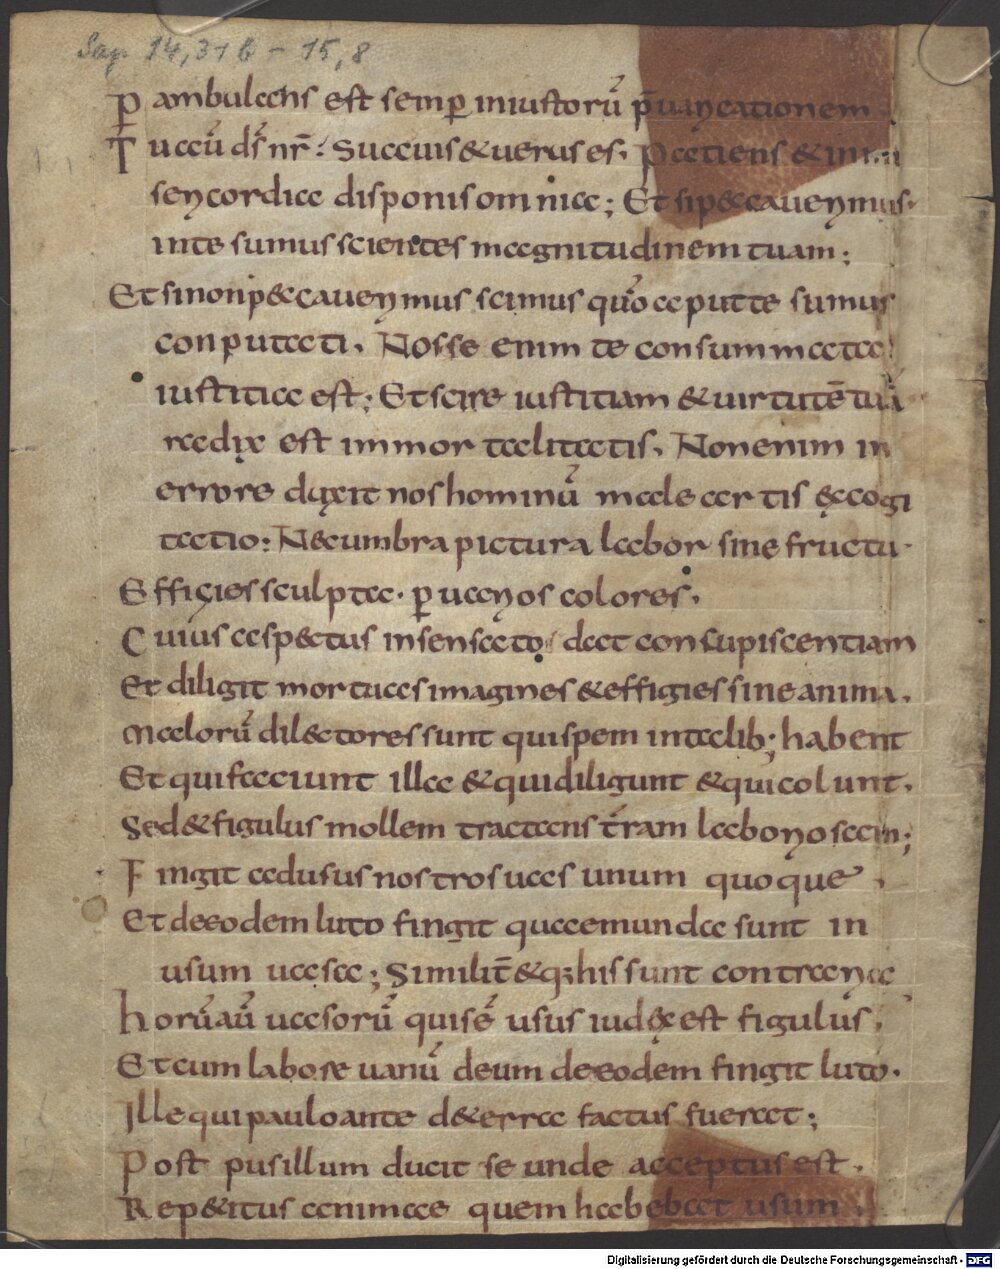 Sap 14,31b - 15,8
P ambulans est semp iniustorū p̄uaricationem
Tu aū ds̄ nr̄. Suauis & uerus es. Patiens & in mi
sericordia disponis omnia; Et si peccauerimus.
in te sumus scientes magnitudinem tuam;
Et si non peccauerimus scimus quō apud te sumus
conputati. Nosse enim te consummata
iustitia est; Et scire iustitiam & uirtutē tuā
radix est immortalitatis. Non enim in
errore duxit nos hominū male artis excogi
tatio: Nec umbra pictura labor sine fructu.
Effigies sculpta. p uarios colores.
Cuius aspectus insensato dat concupiscentiam
Et diligit mortuas imagines & effigies sine anima.
Malorū dilectores sunt qui spem in talib; habent
Et qui faciunt illa & qui diligunt & qui colunt.
Sed & figulus mollem tractans t̄ram laboriosam;
Fingit ad usus nostros uas unum quoque.
Et de eodem luto fingit quae munda sunt in
usum uasa; Similit̄ & q; his sunt contraria
horū aū uasorū qui sē usus iudex est figulus.
Et cum labore uanū deum de eodem fingit luto.
Ille qui paulo ante de terra factus fuerat;
Post pusillum ducit se unde acceptus est.
Repetitus animae quem habebat usum.
Digitalisierung gefördert durch die Deutsche Forschungsgemeinschaft - DFG